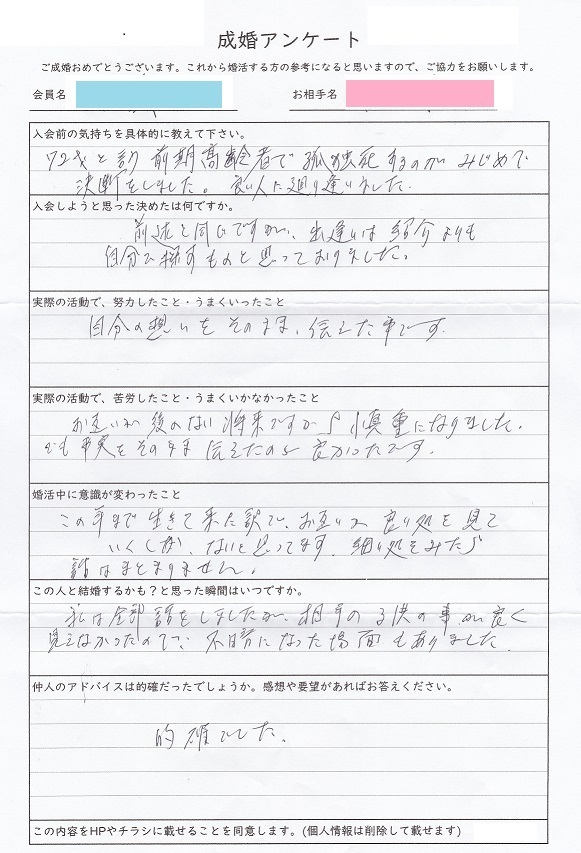 成婚アンケート
ご成婚おめでとうございます。これから婚活する方の参考になると思いますので、ご協力をお願いします。
会員名
お相手名
入会前の気持ちを具体的に教えて下さい。
72才と言う前期高齢者で孤独死するのがみじめで
決断をしました。良い人に廻り逢いました。
入会しようと思った決めたは何ですか。
前述と同じですが、出逢いは紹介よりも
自分で探すものと思っておりました。
実際の活動で、努力したこと・うまくいったこと
自分の想いをそのまま、伝えた事です。
実際の活動で、苦労したこと・うまくいかなかったこと
お互いが後のない将来ですから慎重になりました。
でも事実をそのまま伝えたのが良かったです。
婚活中に意識が変わったこと
この年まで生きて来た訳で、お互いの良い処を見て
いくしか、ないと思ってます。細い処をみたら
話はまとまりません。
この人と結婚するかも？と思った瞬間はいつですか。
私は全部話をしましたが、相手の子供の事が良く
見えなかったので、不暗になった場面もありました。
仲人のアドバイスは的確だったでしょうか。感想や要望があればお答えください。
的確でした。
この内容をHPやチラシに載せることを同意します。(個人情報は削除して載せます)